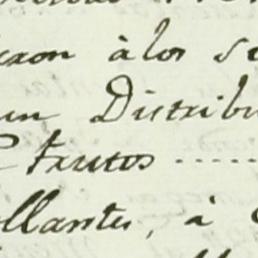 xon à los se
un Distribu
frutos ......
llantes, à